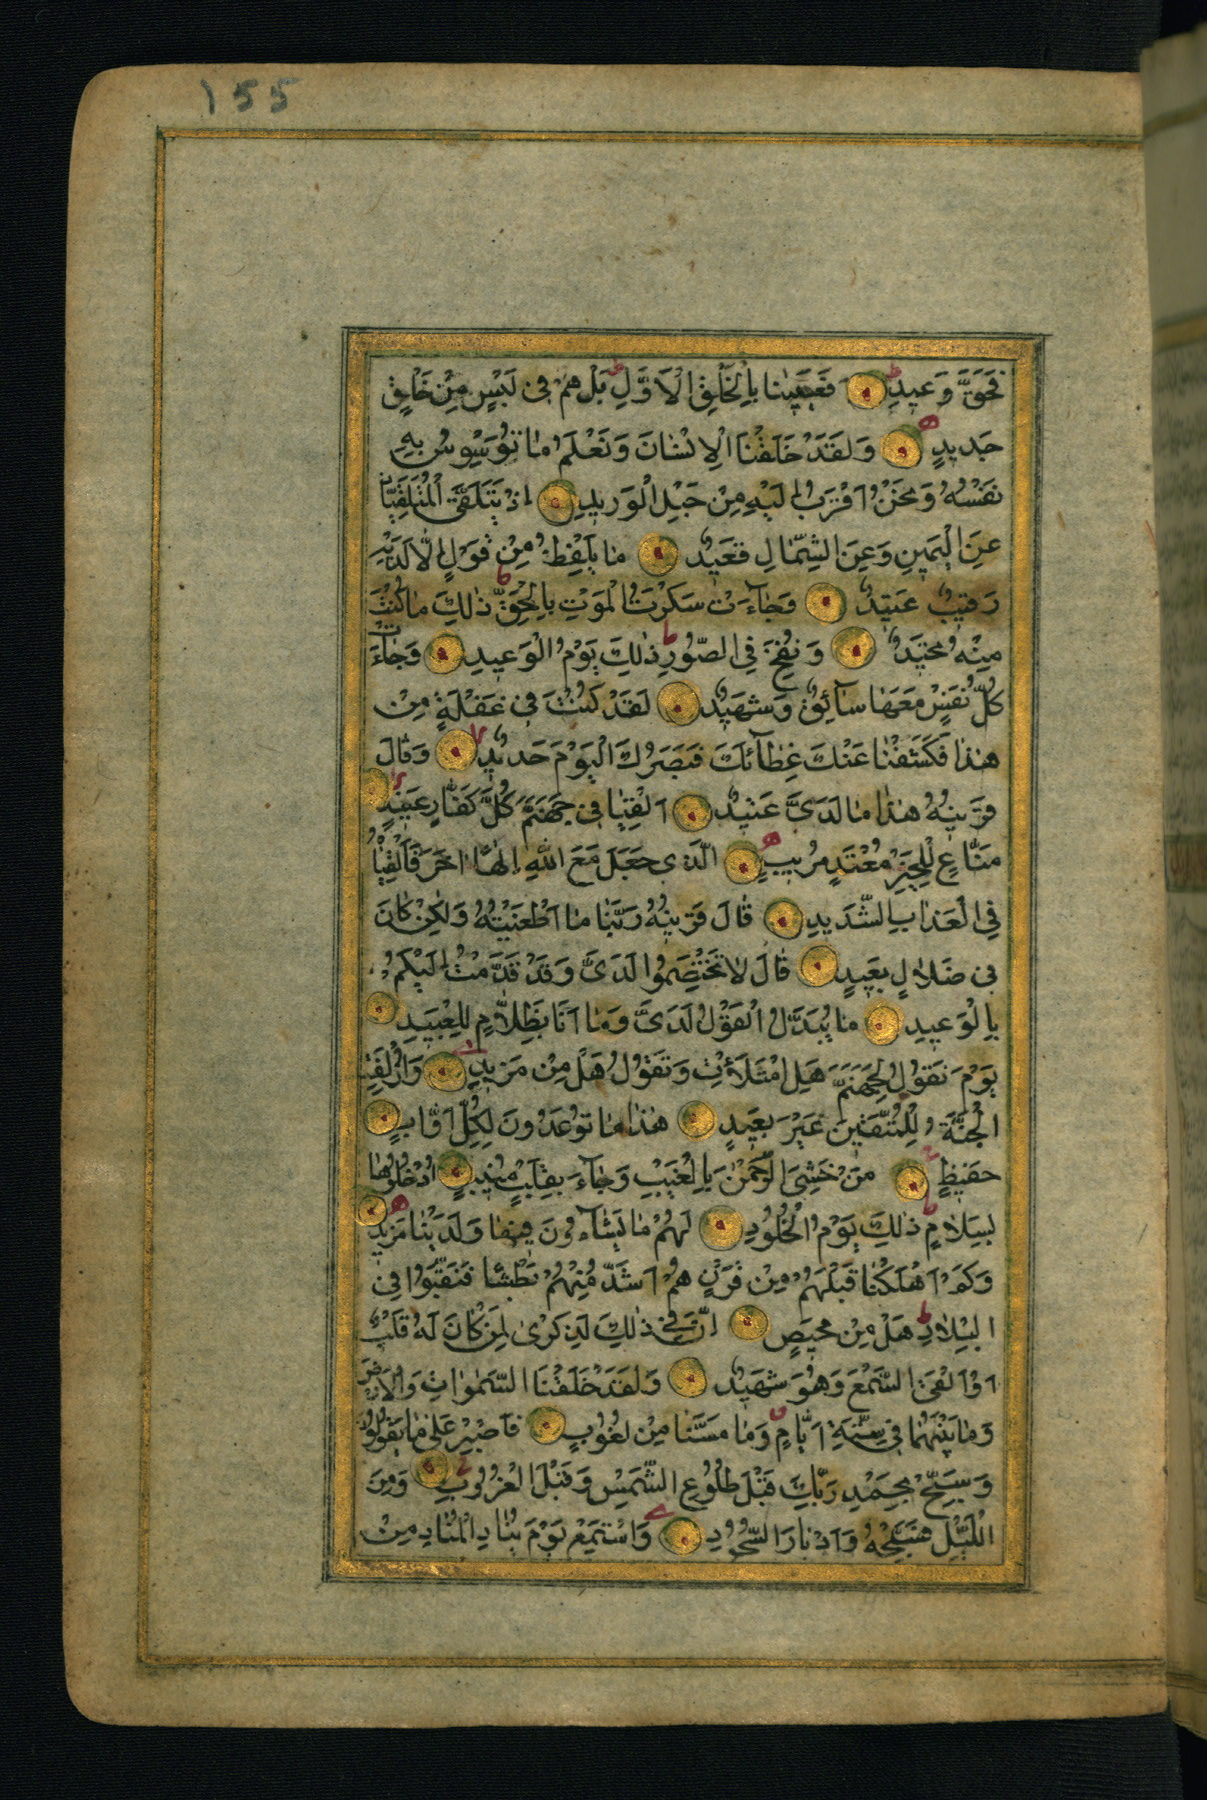 155
فَحَقَّ وَعِيدِ أَفَعَيِينَا بِالْخَلْقِ الْأَوَّلِ بَلْ هُمْ فِي لَبْسٍ مِنْ خَلْقٍ
جَدِيدٍ وَلَقَدْ خَلَقْنَا الْإِنْسَانَ وَنَعْلَمُ مَا تُوَسْوِسُ بِهِ
نَفْسُهُ وَنَحْنُ أَقْرَبُ إِلَيْهِ مِنْ حَبْلِ الْوَرِيدِ إِذْ يَتَلَقَّى الْمُتَلَقِّيَانِ
عَنِ الْيَمِينِ وَعَنِ الشِّمَالِ قَعِيدٌ مَا يَلْفِظُ مِنْ قَوْلٍ إِلَّا لَدَيْهِ
رَقِيبٌ عَتِيدٌ وَجَآءَتْ سَكْرَتُ الْمَوْتِ بِالْحَقِّ ذٰلِكَ مَا كُنْتَ
مِنْهُ تَحِيدُ وَنُفِخَ فِي الصُّورِ ذٰلِكَ يَوْمُ الْوَعِيدِ وَجَآءَتْ
كُلُّ نَفْسٍ مَعَهَا سَآئِقٌ وَشَهِيدٌ لَقَدْ كُنْتَ فِي غَفْلَةٍ مِنْ
هٰذَا فَكَشَفْنَا عَنْكَ غِطَآئَكَ فَبَصَرُكَ الْيَوْمَ حَدِيدٌ وَقَالَ
قَرِينُهُ هٰذَا مَا لَدَيَّ عَتِيدٌ أَلْقِيَا فِي جَهَنَّمَ كُلَّ كَفَّارٍ عَنِيدٍ
مَنَّاعٍ لِلْخَيْرِ مُعْتَدٍ مُرِيبٍ الَّذِي جَعَلَ مَعَ اللهِ إِلٰهًا اٰخَرَ فَأَلْقِيَاهُ
فِي الْعَذَابِ الشَّدِيدِ قَالَ قَرِينُهُ رَبَّنَا مَا أَطْغَيْتُهُ وَلٰكِنْ كَانَ
فِي ضَلَالٍ بَعِيدٍ قَالَ لَا تَخْتَصِمُوا لَدَيَّ وَقَدْ قَدَّمْتُ إِلَيْكُمْ
بِالْوَعِيدِ مَا يُبَدَّلُ الْقَوْلُ لَدَيَّ وَمَا أَنَا بِظَلَّامٍ لِلْعَبِيدِ
يَوْمَ نَقُولُ لِجَهَنَّمَ هَلِ امْتَلَأْتِ وَتَقُولُ هَلْ مِنْ مَزِيدٍ وَأُزْلِفَتِ
الْجَنَّةُ لِلْمُتَّقِينَ غَيْرَ بَعِيدٍ هٰذَا مَا تُوعَدُونَ لِكُلِّ أَوَّابٍ
حَفِيظٍ مَنْ خَشِيَ الرَّحْمٰنَ بِالْغَيْبِ وَجَآءَ بِقَلْبٍ مُنِيبٍ ادْخُلُوهَا
بِسَلَامٍ ذٰلِكَ يَوْمُ الْخُلُودِ لَهُمْ مَا يَشَآءُونَ فِيهَا وَلَدَيْنَا مَزِيدٌ
وَكَمْ أَهْلَكْنَا قَبْلَهُمْ مِنْ قَرْنٍ هُمْ أَشَدُّ مِنْهُمْ بَطْشًا فَنَقَّبُوا فِي
الْبِلَادِ هَلْ مِنْ مَحِيصٍ إِنَّ فِي ذٰلِكَ لَذِكْرٰى لِمَنْ كَانَ لَهُ قَلْبٌ
أَوْ أَلْقَى السَّمْعَ وَهُوَ شَهِيدٌ وَلَقَدْ خَلَقْنَا السَّمٰوَاتِ وَالْأَرْضَ
وَمَا بَيْنَهُمَا فِي سِتَّةِ أَيَّامٍ وَمَا مَسَّنَا مِنْ لُغُوبٍ فَاصْبِرْ عَلٰى مَا يَقُولُونَ
وَسَبِّحْ بِحَمْدِ رَبِّكَ قَبْلَ طُلُوعِ الشَّمْسِ وَقَبْلَ الْغُرُوبِ وَمِنَ
اللَّيْلِ فَسَبِّحْهُ وَأَدْبَارَ السُّجُودِ وَاسْتَمِعْ يَوْمَ يُنَادِ الْمُنَادِ مِنْ